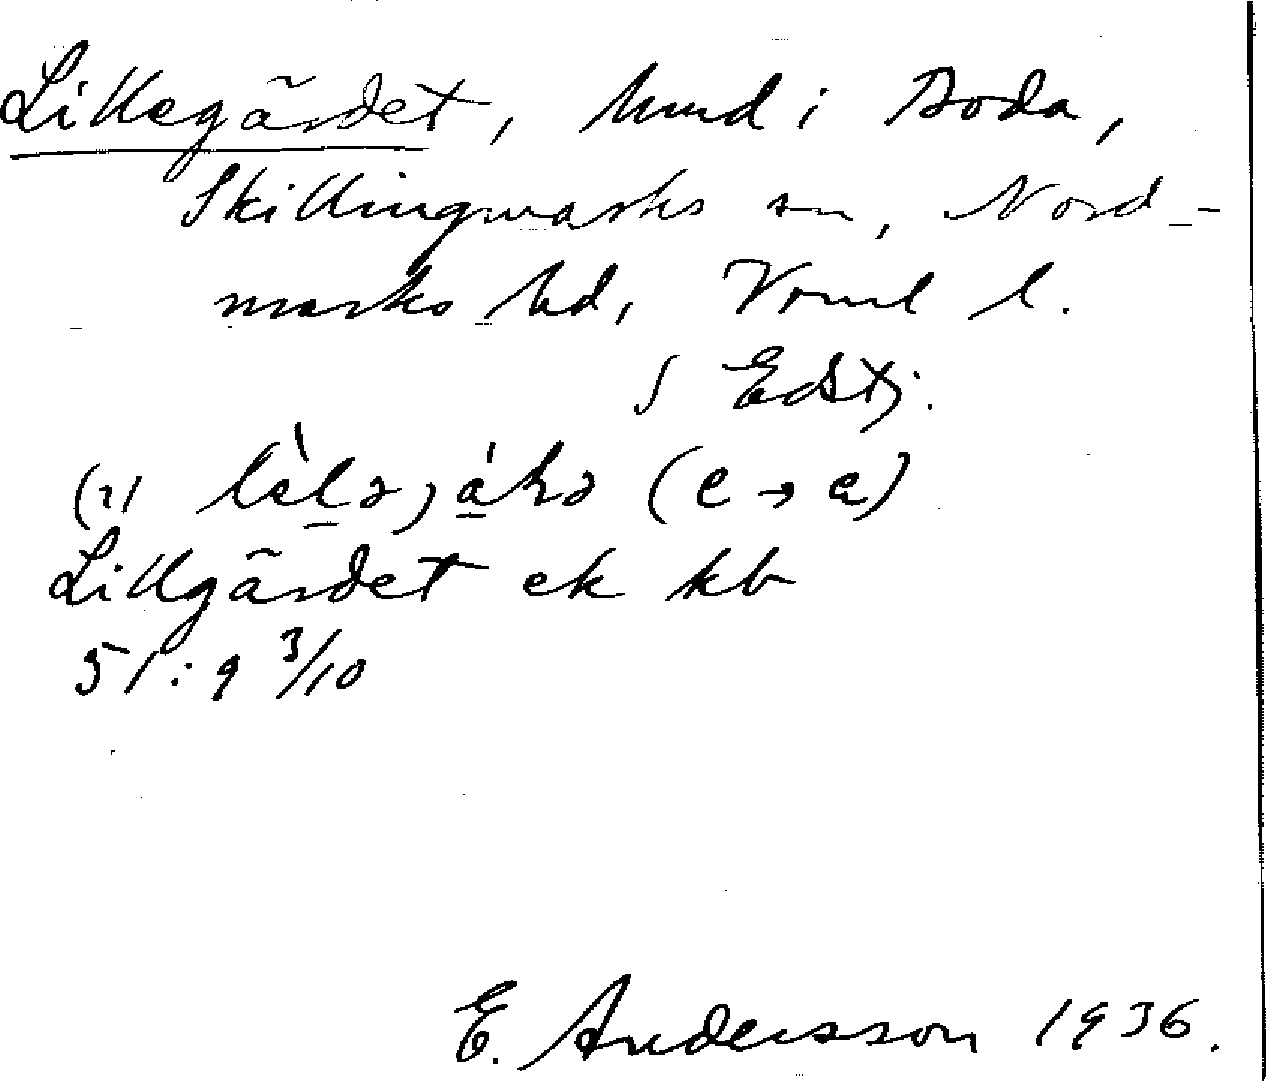 Lillegärdet, hmd i Boda,
Skillingmarks sn, Nord-
marks hd, Vrml l.
S Edstj.
Lillgärdet ek kb
51:9 3/10
E. Andersson 1936.